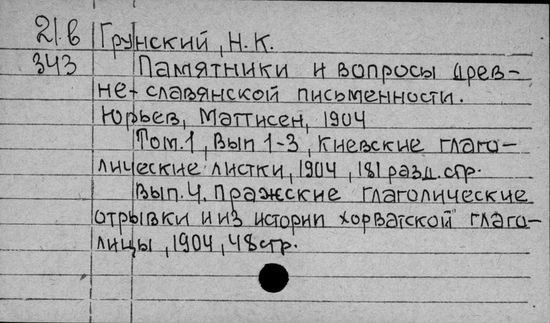 21.в Грунский, Н.К.
343 Памятники и вопросы древ-
не-славянской письменности.
Юрьев, Маттисен, 1904
Том.1, Вып 1-3, Киевские глаго-
лические листки, 1904, 181 разд.стр.
Вып.4. Пражские глаголические
отрывки и из истории хорватской глаго-
лицы, 1904, 48 стр.